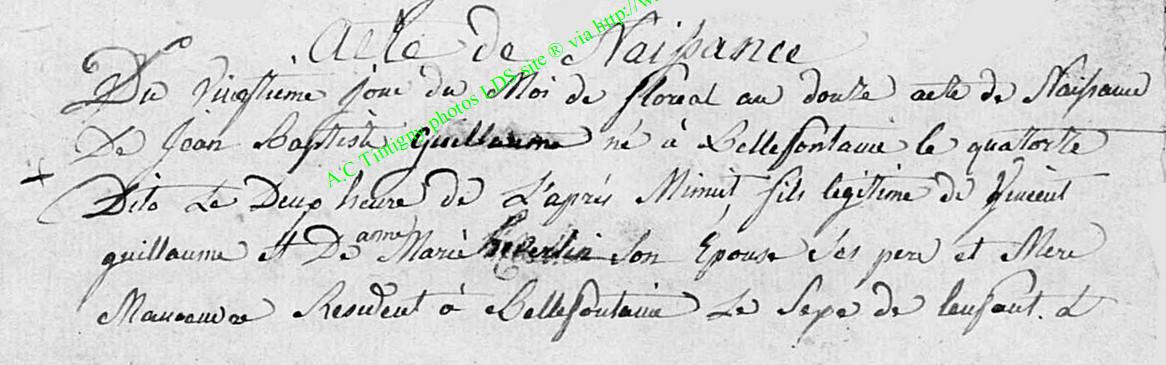 Acte de Naissance
Du Vingtième jour du Moi de floreal an douze acte de Naissance
De Jean Baptiste Guillaume né à Bellefontaine le quatorze
+ Dito Le Deux heure de L'après Minuit, fils legitime de Vincent
guillaume et Dame Marie son Epouse ses pere et Mere
Resident à Bellefontaine Le Sexe de lenfant. a
A.C Tintigny photos LDS site ® via http://w